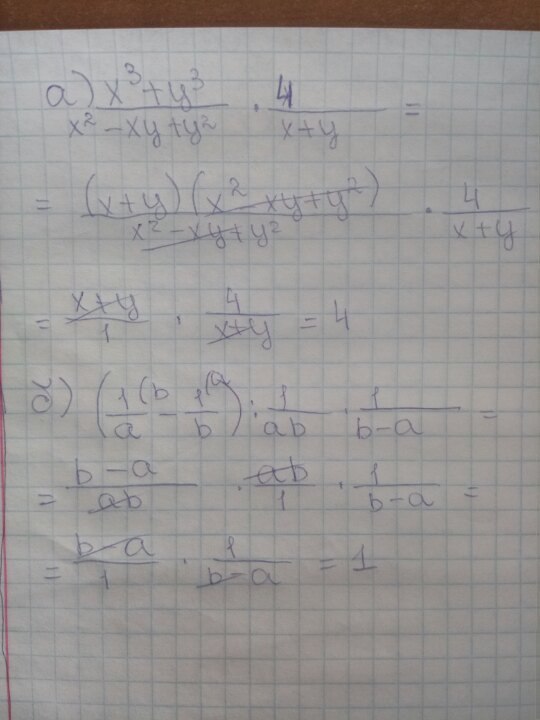 а) x³+y³ / x²-xy+y² · 4 / x+y =
= (x+y)(x²-xy+y²) / x²-xy+y² · 4 / x+y
= x+y / 1 · 4 / x+y = 4
б) (1/a (b - 1/b (a) : 1/ab · 1/b-a =
= b-a / ab · ab / 1 · 1 / b-a =
= b-a / 1 · 1 / b-a = 1